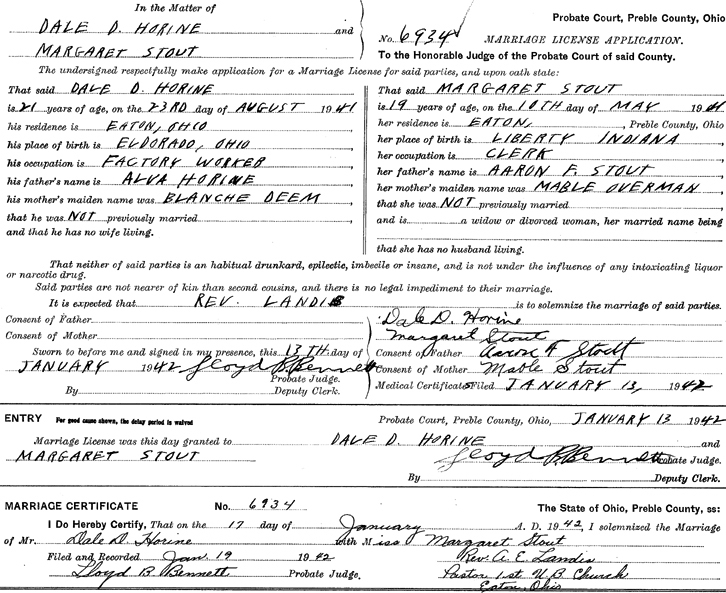 In the Matter of
DALE D. HORINE and
MARGARET STOUT
Probate Court, Preble County, Ohio
No. 6934 MARRIAGE LICENSE APPLICATION.
To the Honorable Judge of the Probate Court of said County.
The undersigned respectfully make application for a Marriage License for said parties, and upon oath state:
That said DALE D. HORINE
is 21 years of age, on the 23RD day of AUGUST 1941
his residence is EATON, OHIO
his place of birth is ELDORADO, OHIO
his occupation is FACTORY WORKER
his father's name is ALVA HORINE
his mother's maiden name was BLANCHE DEEM
that he was NOT previously married
and that he has no wife living.
That said MARGARET STOUT
is 19 years of age, on the 10TH day of MAY 1941
her residence is EATON, , Preble County, Ohio
her place of birth is LIBERTY INDIANA
her occupation is CLERK
her father's name is AARON F. STOUT
her mother's maiden name was MABLE OVERMAN
that she was NOT previously married
and is a widow or divorced woman, her married name being
that she has no husband living.
That neither of said parties is an habitual drunkard, epileptic, imbecile or insane, and is not under the influence of any intoxicating liquor
or narcotic drug.
Said parties are not nearer of kin than second cousins, and there is no legal impediment to their marriage.
It is expected that REV. LANDIS is to solemnize the marriage of said parties.
Consent of Father
Consent of Mother
Sworn to before me and signed in my presence, this 13TH day of
JANUARY 1942 Lloyd B. Bennett
Probate Judge.
By Deputy Clerk.
Dale D. Horine
Margaret Stout
Consent of Father Aaron F Stout
Consent of Mother Mable Stout
Medical Certificates Filed JANUARY 13, 1942
ENTRY For good cause shown, the delay period is waived
Probate Court, Preble County, Ohio, JANUARY 13 1942
Marriage License was this day granted to DALE D. HORINE and
MARGARET STOUT Lloyd B. Bennett Probate Judge.
By Deputy Clerk.
MARRIAGE CERTIFICATE No. 6934 The State of Ohio, Preble County, ss:
I Do Hereby Certify, That on the 17 day of January A. D. 1942, I solemnized the Marriage
of Mr. Dale D. Horine with Miss Margaret Stout
Filed and Recorded Jan. 19 1942 Rev. A. E. Landis
Lloyd B Bennett Probate Judge. Pastor 1st U.B. Church
Eaton, Ohio